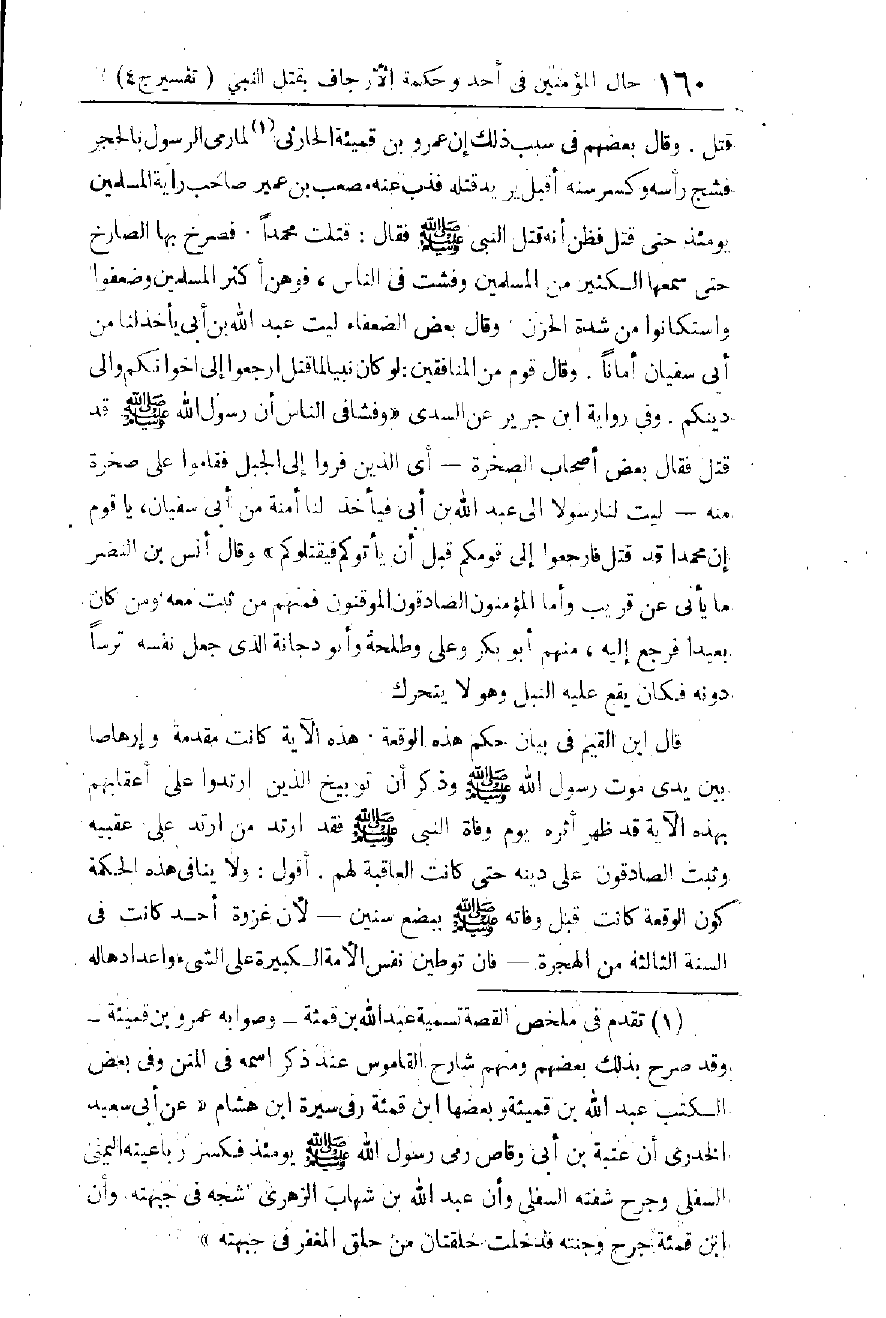 ١٦٠ حال المؤمنين في أحد وحكمة الأرجاف بقتل النبي ( تفسير ج ٤ )
قتل . وقال بعضهم في سبب ذلك إن عمرو بن قميئة الحارثي (١) لما رمى الرسول بالحجر
فشج رأسه وكسر سنه أقبل يريد قتله فذب عنه مصعب بن عمير صاحب راية المسلمين
يومئذ حتى قتل فظن أنه قتل النبي ﷺ فقال : قتلت محمداً . فصرخ بها الصارخ
حتى سمعها الكثير من المسلمين وفشت في الناس ، فوهن أكثر المسلمين وضعفوا
واستكانوا من شدة الحزن . وقال بعض الضعفاء ليت عبد الله بن أبي يأخذ لنا من
أبي سفيان أماناً . وقال قوم من المنافقين : لو كان نبيا لما قتل ارجعوا إلى اخوانكم والى
دينكم . وفي رواية ابن جرير عن السدى «وفشا في الناس أن رسول الله ﷺ قد
قتل فقال بعض أصحاب الصخرة — أى الذين فروا إلى الجبل فقاموا على صخرة
منه — ليت لنا رسولا الى عبد الله بن أبي فيأخذ لنا أمنة من أبي سفيان ، يا قوم
إن محمدا قد قتل فارجعوا إلى قومكم قبل أن يأتوكم فيقتلوكم » وقال أنس بن النضر
ما يأتى عن قريب وأما المؤمنون الصادقون الموقنون فمنهم من ثبت معه ومن كان
بعيدا فرجع إليه ، منهم أبو بكر وعلى وطلحة وأبو دجانة الذى جعل نفسه ترساً
دونه فكان يقع عليه النبل وهو لا يتحرك
قال ابن القيم في بيان حكم هذه الوقعة . هذه الآية كانت مقدمة وإرهاصا
بين يدى موت رسول الله ﷺ وذكر أن توبيخ الذين إرتدوا على أعقابهم
بهذه الآية قد ظهر أثره يوم وفاة النبي ﷺ فقد ارتد من ارتد على عقبيه
وثبت الصادقون على دينه حتى كانت العاقبة لهم . أقول : ولا ينافى هذه الحكمة
كون الوقعة كانت قبل وفاته ﷺ ببضع سنين — لأن غزوة أحد كانت في
السنة الثالثة من الهجرة — فان توطين نفس الأمة الكبيرة على الشىء واعدادها له
(١) تقدم في ملخص القصة تسمية عبد الله بن قمئة _ وصوابه عمرو بن قميئة _
وقد صرح بذلك بعضهم ومنهم شارح القاموس عند ذكر اسمه في المتن وفي بعض
الكتب عبد الله بن قميئة وبعضها ابن قمئة وفى سيرة ابن هشام « عن أبي سعيد
الخدرى أن عتبة بن أبي وقاص رمى رسول الله ﷺ يومئذ فكسر رباعيته اليمنى
السفلى وجرح شفته السفلى وأن عبد الله بن شهاب الزهرى شجه في جبهته وأن
ابن قمئة جرح وجنته فدخلت حلقتان من حلق المغفر في جبهته »